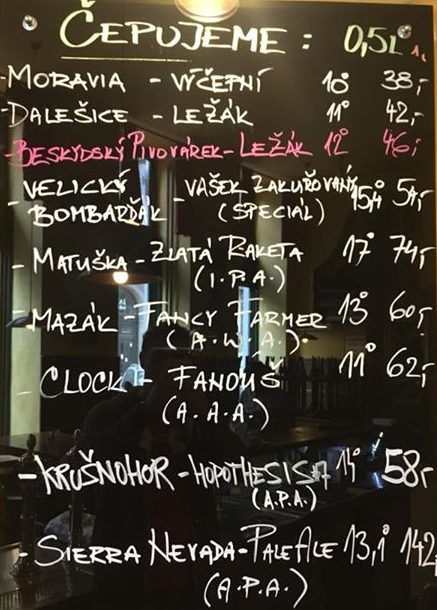 ČEPUJEME: 0,5L
- MORAVIA - VÝČEPNÍ 10° 38,-
- DALEŠICE - LEŽÁK 11° 42,-
- BESKYDSKÝ PIVOVÁREK - LEŽÁK 12° 46,-
- VELICKÝ BOMBARĎÁK - VAŠEK ZAKUŘOVANÝ 15,4° 54,-
(SPECIÁL)
- MATUŠKA - ZLATÁ RAKETA 17° 74,-
(I.P.A.)
- MAZÁK - FANCY FARMER 13° 60,-
(A.W.A.)
- CLOCK - FANOUŠ 11° 62,-
(A.A.A.)
- KRUŠNOHOR - HOPOTHESIS 14° 58,-
(A.P.A.)
- SIERRA NEVADA - PALE ALE 13,1° 142,
(A.P.A.)